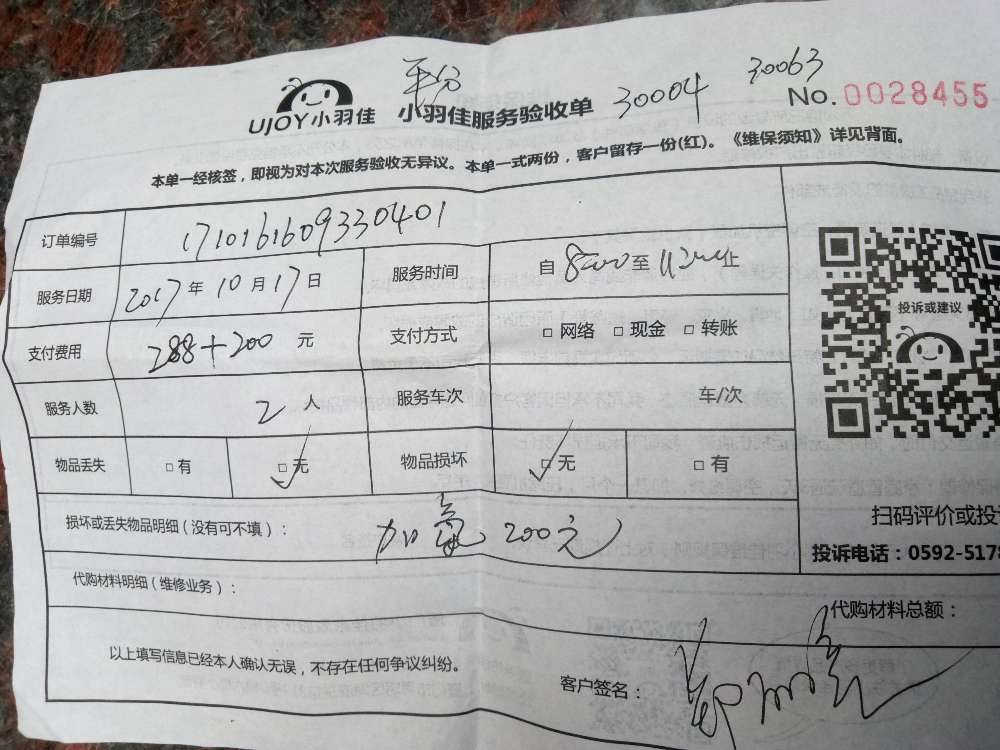 平分 30004 30063
UJOY小羽佳 小羽佳服务验收单 No. 0028455
本单一经核签，即视为对本次服务验收无异议。本单一式两份，客户留存一份(红)。《维保须知》详见背面。
订单编号 171016160933040​1
服务日期 2017年10月17日 服务时间 自8:00至12:00止
支付费用 288+200 元 支付方式 □网络 □现金 □转账
服务人数 2人 服务车次 车/次
物品丢失 □有 □无 物品损坏 □无 □有
损坏或丢失物品明细（没有可不填）： 加氟 200元
代购材料明细（维修业务）：
代购材料总额：
以上填写信息已经本人确认无误，不存在任何争议纠纷。
客户签名：
投诉或建议
扫码评价或投
投诉电话：0592-5178